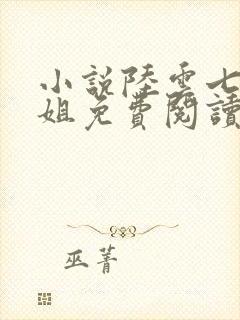 小說陸雲七
姐免費閱讀
巫菁